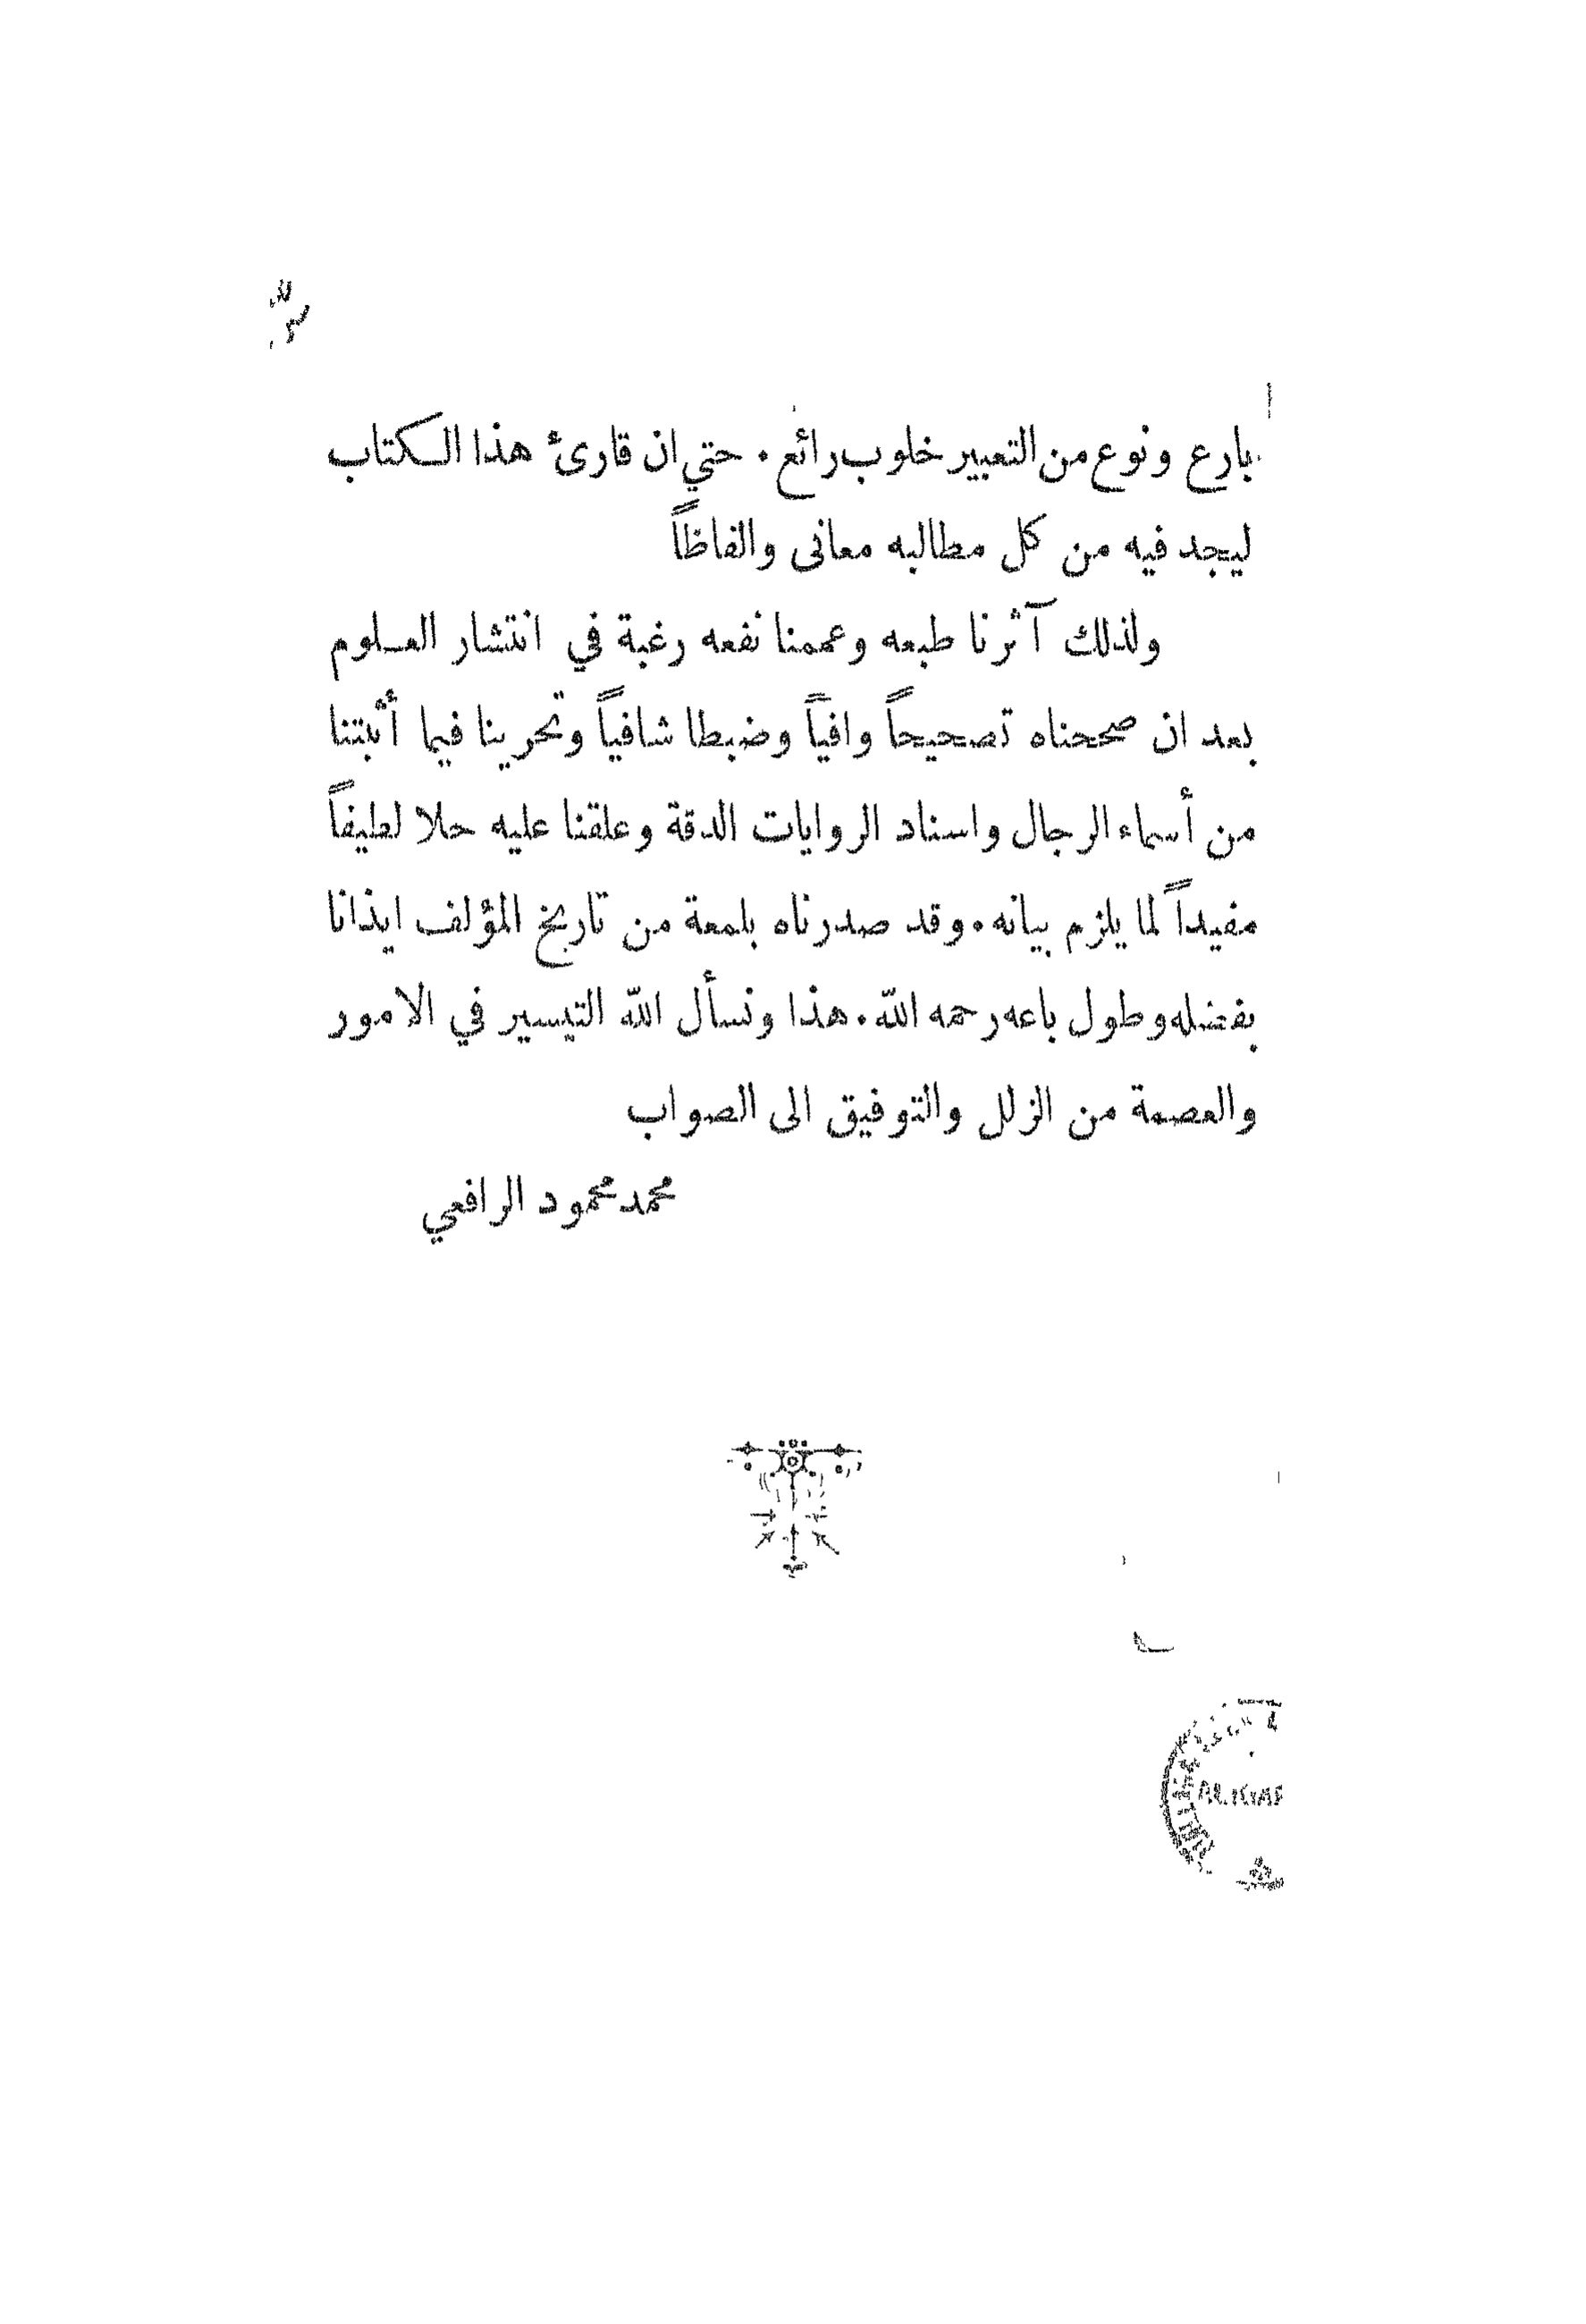 بارع ونوع من التعبير خلوب رائع. حتي ان قارئ هذا الكتاب
ليجد فيه من كل مطالبه معانى والفاظاً
ولذلك آثرنا طبعه وعممنا نفعه رغبة في انتشار العلوم
بعد ان صححناه تصحيحاً وافياً وضبطا شافياً وتحرينا فيما أثبتنا
من أسماء الرجال واسناد الروايات الدقة وعلقنا عليه حلا لطيفاً
مفيداً لما يلزم بيانه. وقد صدرناه بلمعة من تاريخ المؤلف ايذانا
بفضله وطول باعه رحمه الله. هذا ونسأل الله التيسير في الامور
والعصمة من الزلل والتوفيق الى الصواب
محمد محمود الرافعي